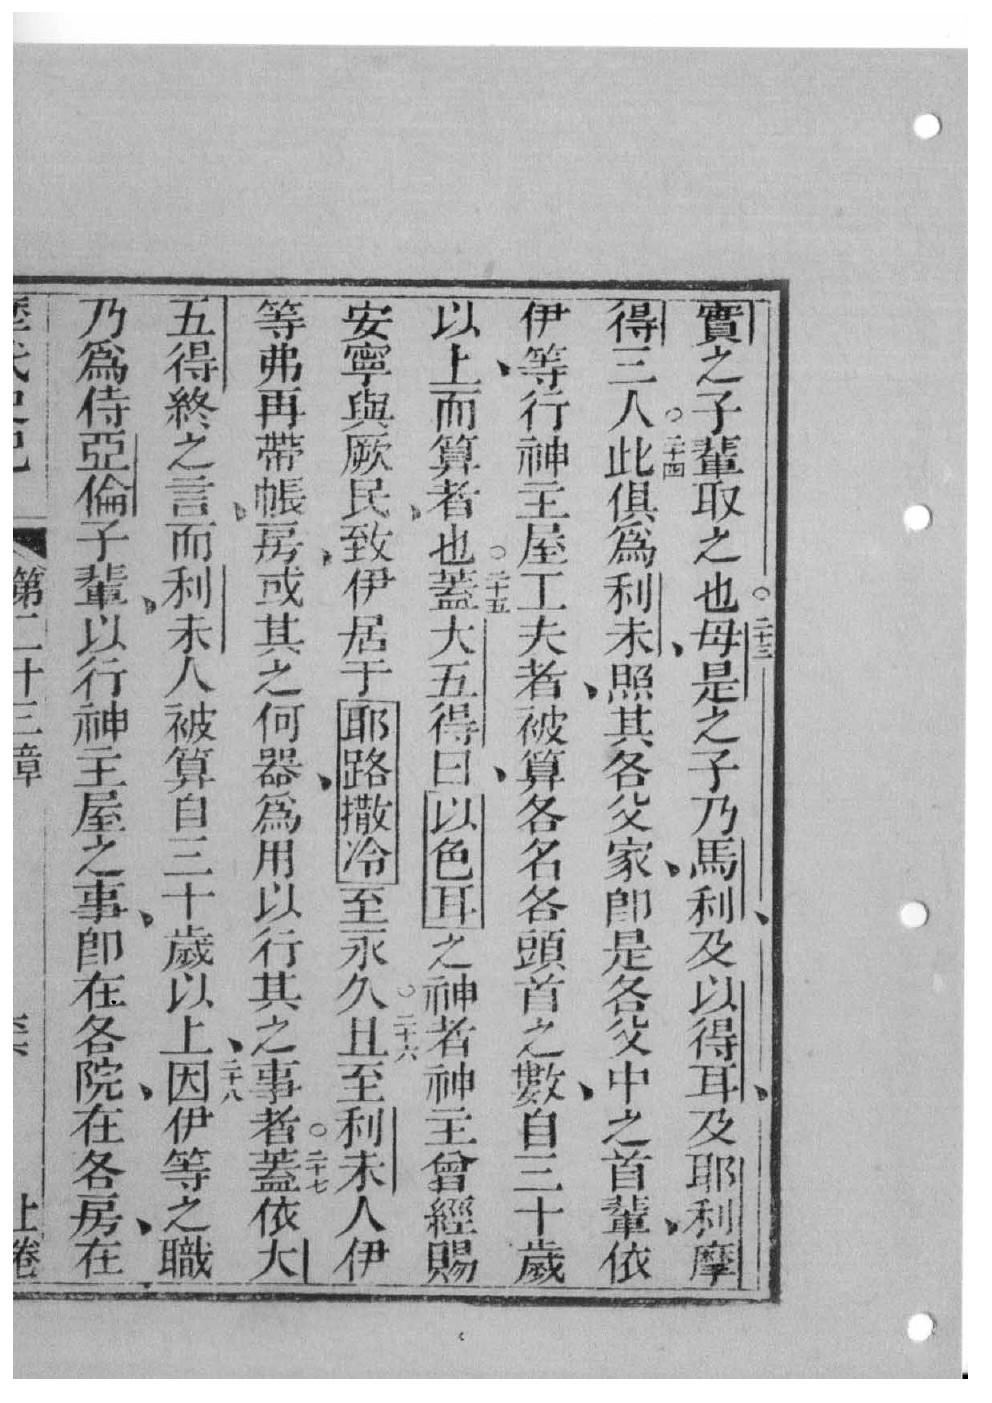 實之子輩取之也。二十三母是之子乃馬利、及以得耳、及耶利摩
得三人。二十四此俱爲利未、照其各父家、卽是各父中之首輩、依
伊等行神主屋工夫者、被算各名各頭首之數、自三十歲
以上、而算者也。二十五蓋大五得曰、以色耳之神者神主曾經賜
安寧與厥民、致伊居于耶路撒冷至永久。二十六且至利未人伊
等弗再帶帳房、或其之何器、爲用以行其之事者。二十七蓋依大
五得終之言、而利未人被算自三十歲以上、二十八因伊等之職
乃爲侍亞倫子輩、以行神主屋之事、卽在各院、在各房、在
歷代史記 第二十三章 上卷